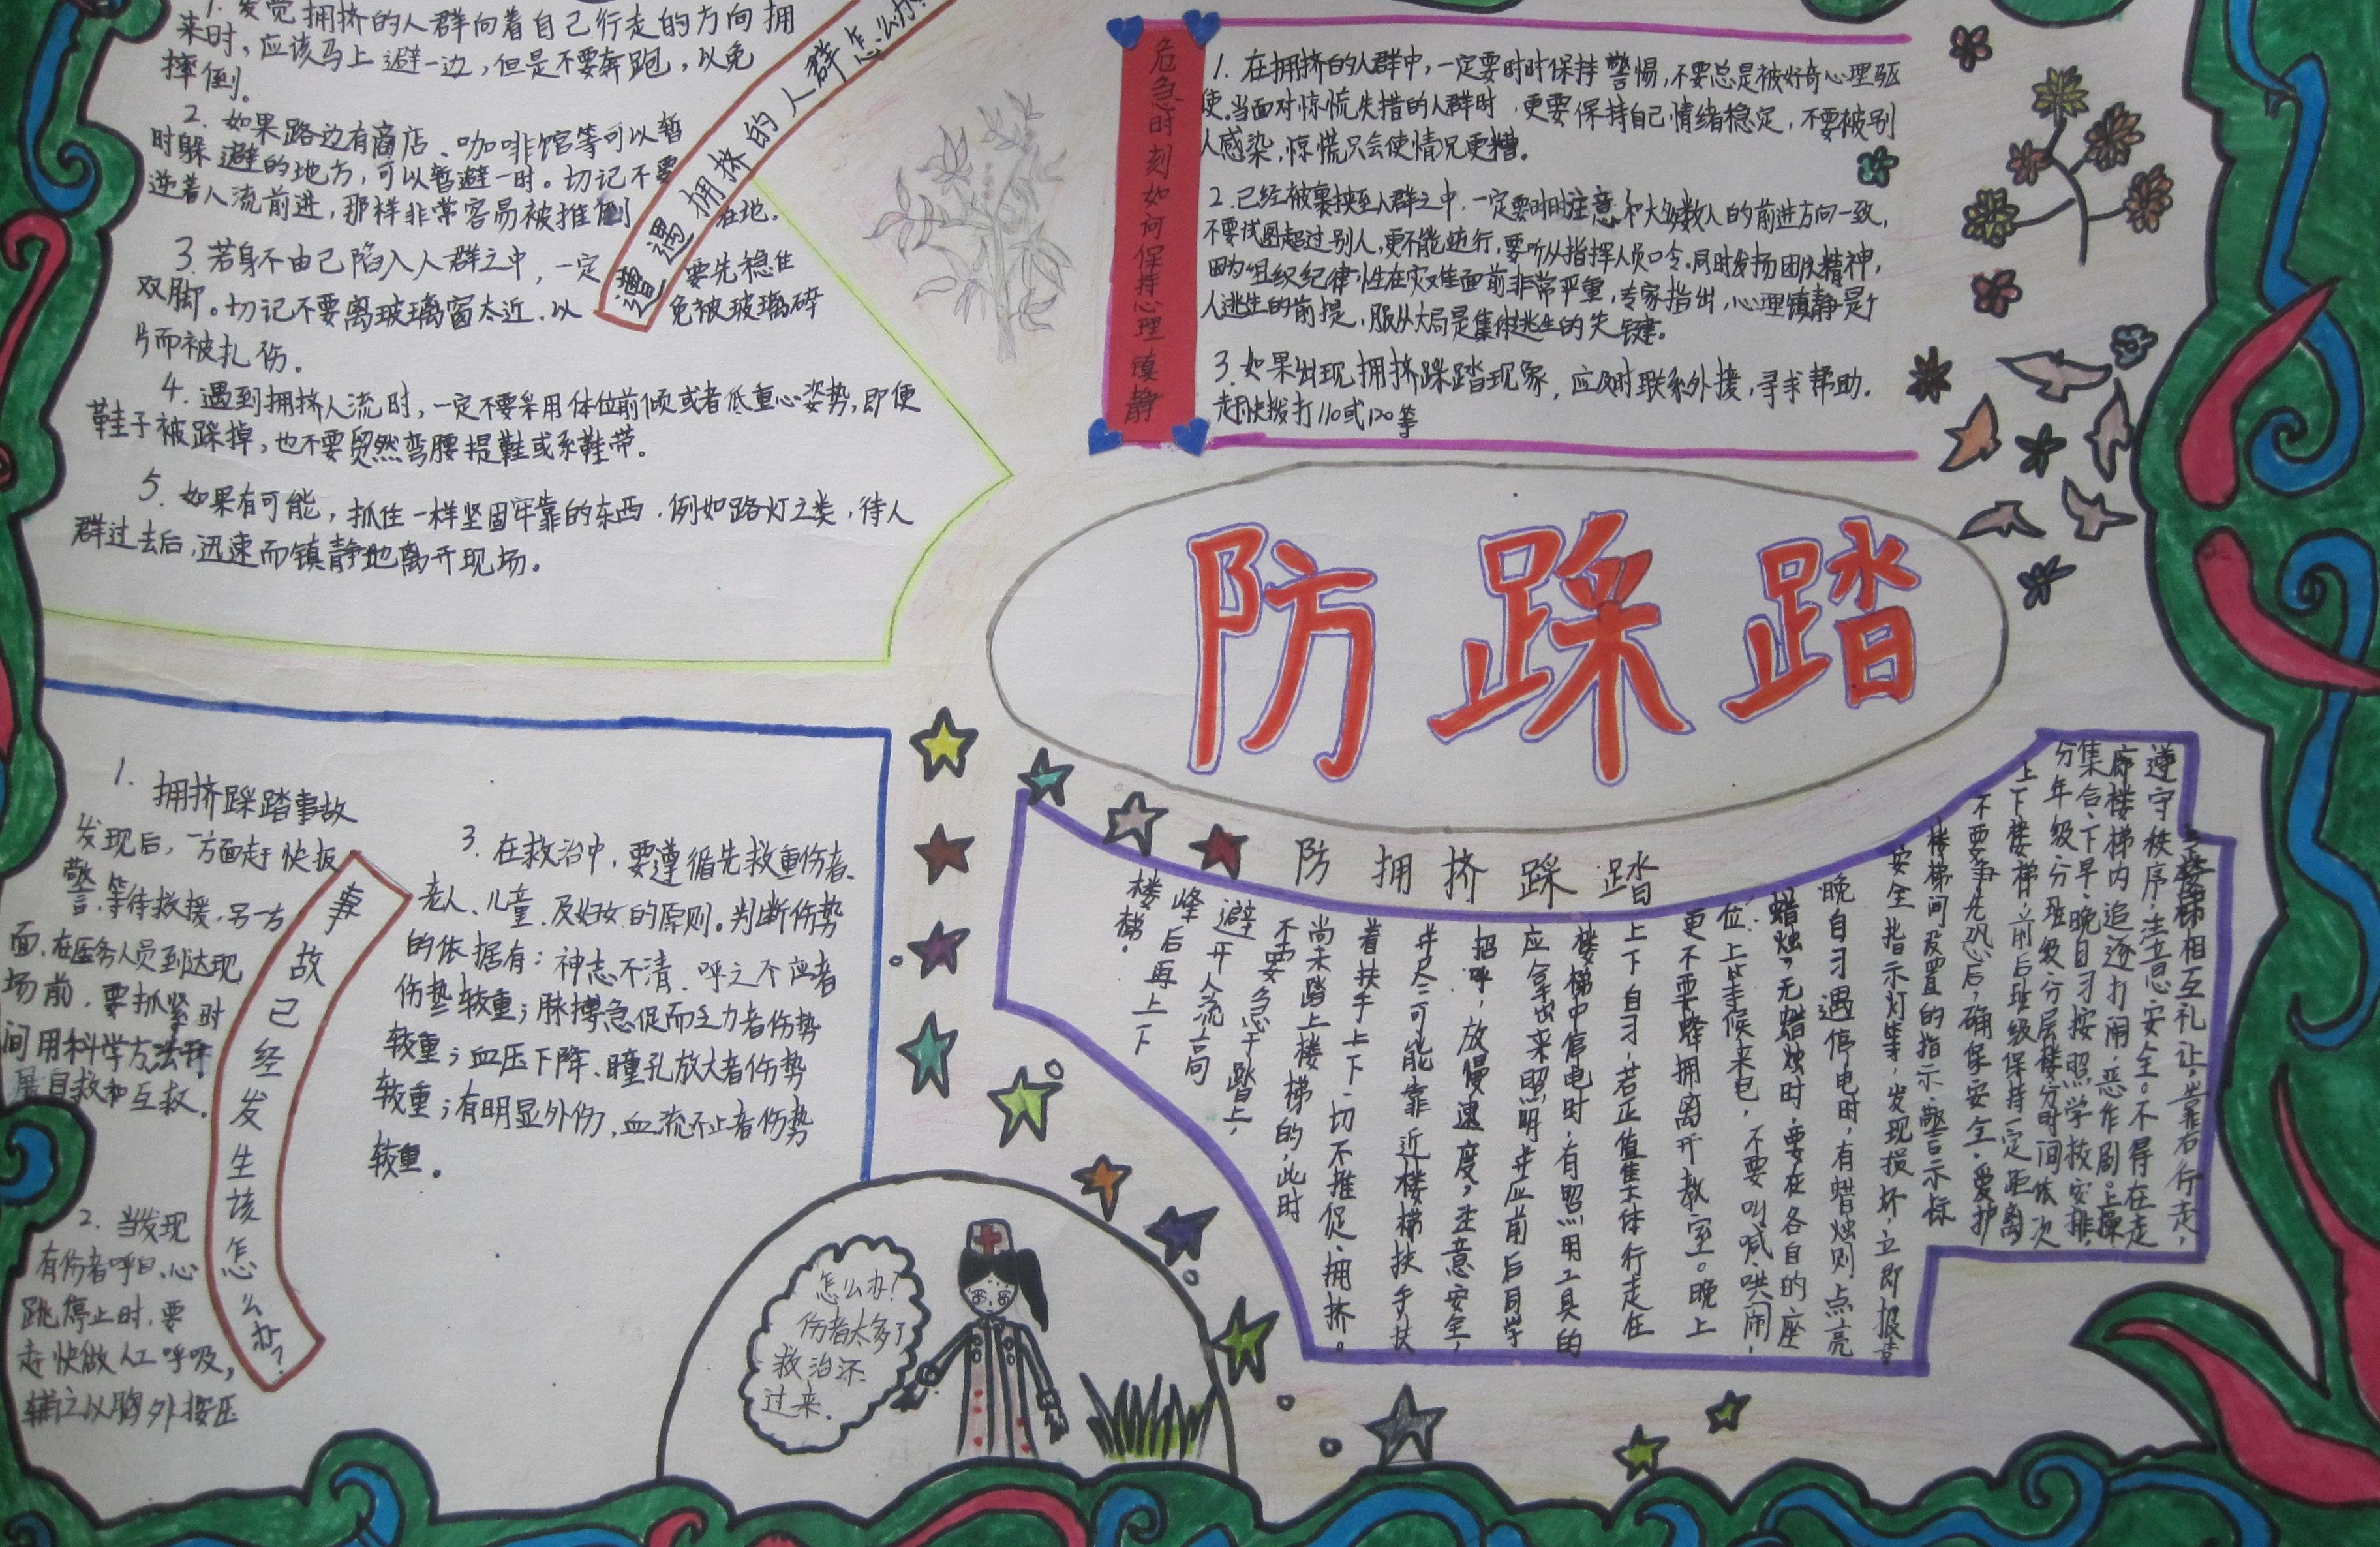 遭遇拥挤的人群怎么办?
1. 发觉拥挤的人群向着自己行走的方向拥
来时，应该马上避一边，但是不要奔跑，以免
摔倒。
2. 如果路边有商店、咖啡馆等可以暂
时躲避的地方，可以暂避一时。切记不要
逆着人流前进，那样非常容易被推倒在地。
3. 若身不由己陷入人群之中，一定要先稳住
双脚。切记不要离玻璃窗太近，以免被玻璃碎
片而被扎伤。
4. 遇到拥挤人流时，一定不要采用体位前倾或者低重心姿势，即便
鞋子被踩掉，也不要贸然弯腰提鞋或系鞋带。
5. 如果有可能，抓住一样坚固牢靠的东西，例如路灯之类，待人
群过去后，迅速而镇静地离开现场。
危急时刻如何保持心理镇静
1. 在拥挤的人群中，一定要时时保持警惕，不要总是被好奇心理驱
使。当面对惊慌失措的人群时，更要保持自己情绪稳定，不要被别
人感染，惊慌只会使情况更糟。
2. 已经被裹挟至人群之中，一定要时时注意和大多数人的前进方向一致，
不要试图超过别人，更不能逆行，要听从指挥人员口令。同时发扬团队精神，
因为组织纪律性在灾难面前非常严重，专家指出，心理镇静是个
人逃生的前提，服从大局是集体逃生的关键。
3. 如果出现拥挤踩踏现象，应及时联系外援，寻求帮助。
赶快拨打110或120等
防踩踏
事故已经发生该怎么办?
1. 拥挤踩踏事故
发现后，一方面赶快报
警，等待救援，另一方
面，在医务人员到达现
场前，要抓紧时
间用科学方法开
展自救和互救。
2. 当发现
有伤者呼吸、心
跳停止时，要
赶快做人工呼吸，
辅之以胸外按压
3. 在救治中，要遵循先救重伤者、
老人、儿童、及妇女的原则。判断伤势
的依据有：神志不清、呼之不应者
伤势较重；脉搏急促而乏力者伤势
较重；血压下降、瞳孔放大者伤势
较重；有明显外伤，血流不止者伤势
较重。
怎么办?
伤者太多了
救治不
过来.
防拥挤踩踏
上下楼梯相互礼让，靠右行走，
遵守秩序，注意安全。不得在走
廊楼梯内追逐打闹，恶作剧。上操
集合、下早、晚自习按照学校安排，
分年级分班级分层楼分时间依次
上下楼梯，前后班级保持一定距离
不要争先恐后，确保安全，爱护
楼梯间设置的指示、警示标
安全指示灯等，发现损坏，立即报告
晚自习遇停电时，有蜡烛则点亮
蜡烛，无蜡烛时，要在各自的座
位上等候来电，不要叫喊、哄闹，
更不要蜂拥离开教室。晚上
上下自习，若正值集体行走在
楼梯中停电时，有照明工具的
应拿出来照明，并应前后同学
招呼，放慢速度，注意安全，
并尽可能靠近楼梯扶手扶
着扶手上下，切不推促、拥挤。
尚未踏上楼梯的，此时
不要急于踏上，
避开人流高
峰后再上下
楼梯。